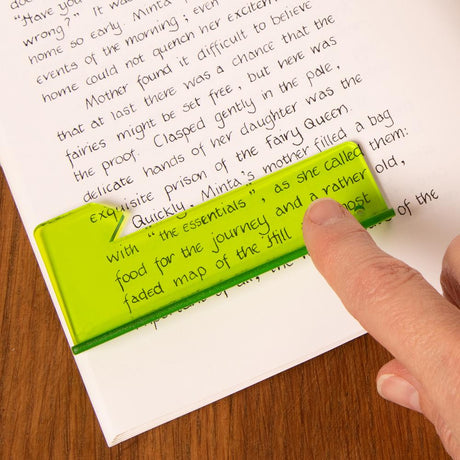 "Have you
wrong?" It was
home so early. Minta
events of the morning; even
home could not quench her excitem
Mother found it difficult to believe
that at last there was a chance that the
fairies might be set free, but here was
the proof. Clasped gently in the pale,
delicate hands of her daughter was the
exquisite prison of the fairy Queen.
Quickly, Minta's mother filled a bag
with "the essentials", as she called them:
food for the journey and a rather old,
faded map of the Hill most of the